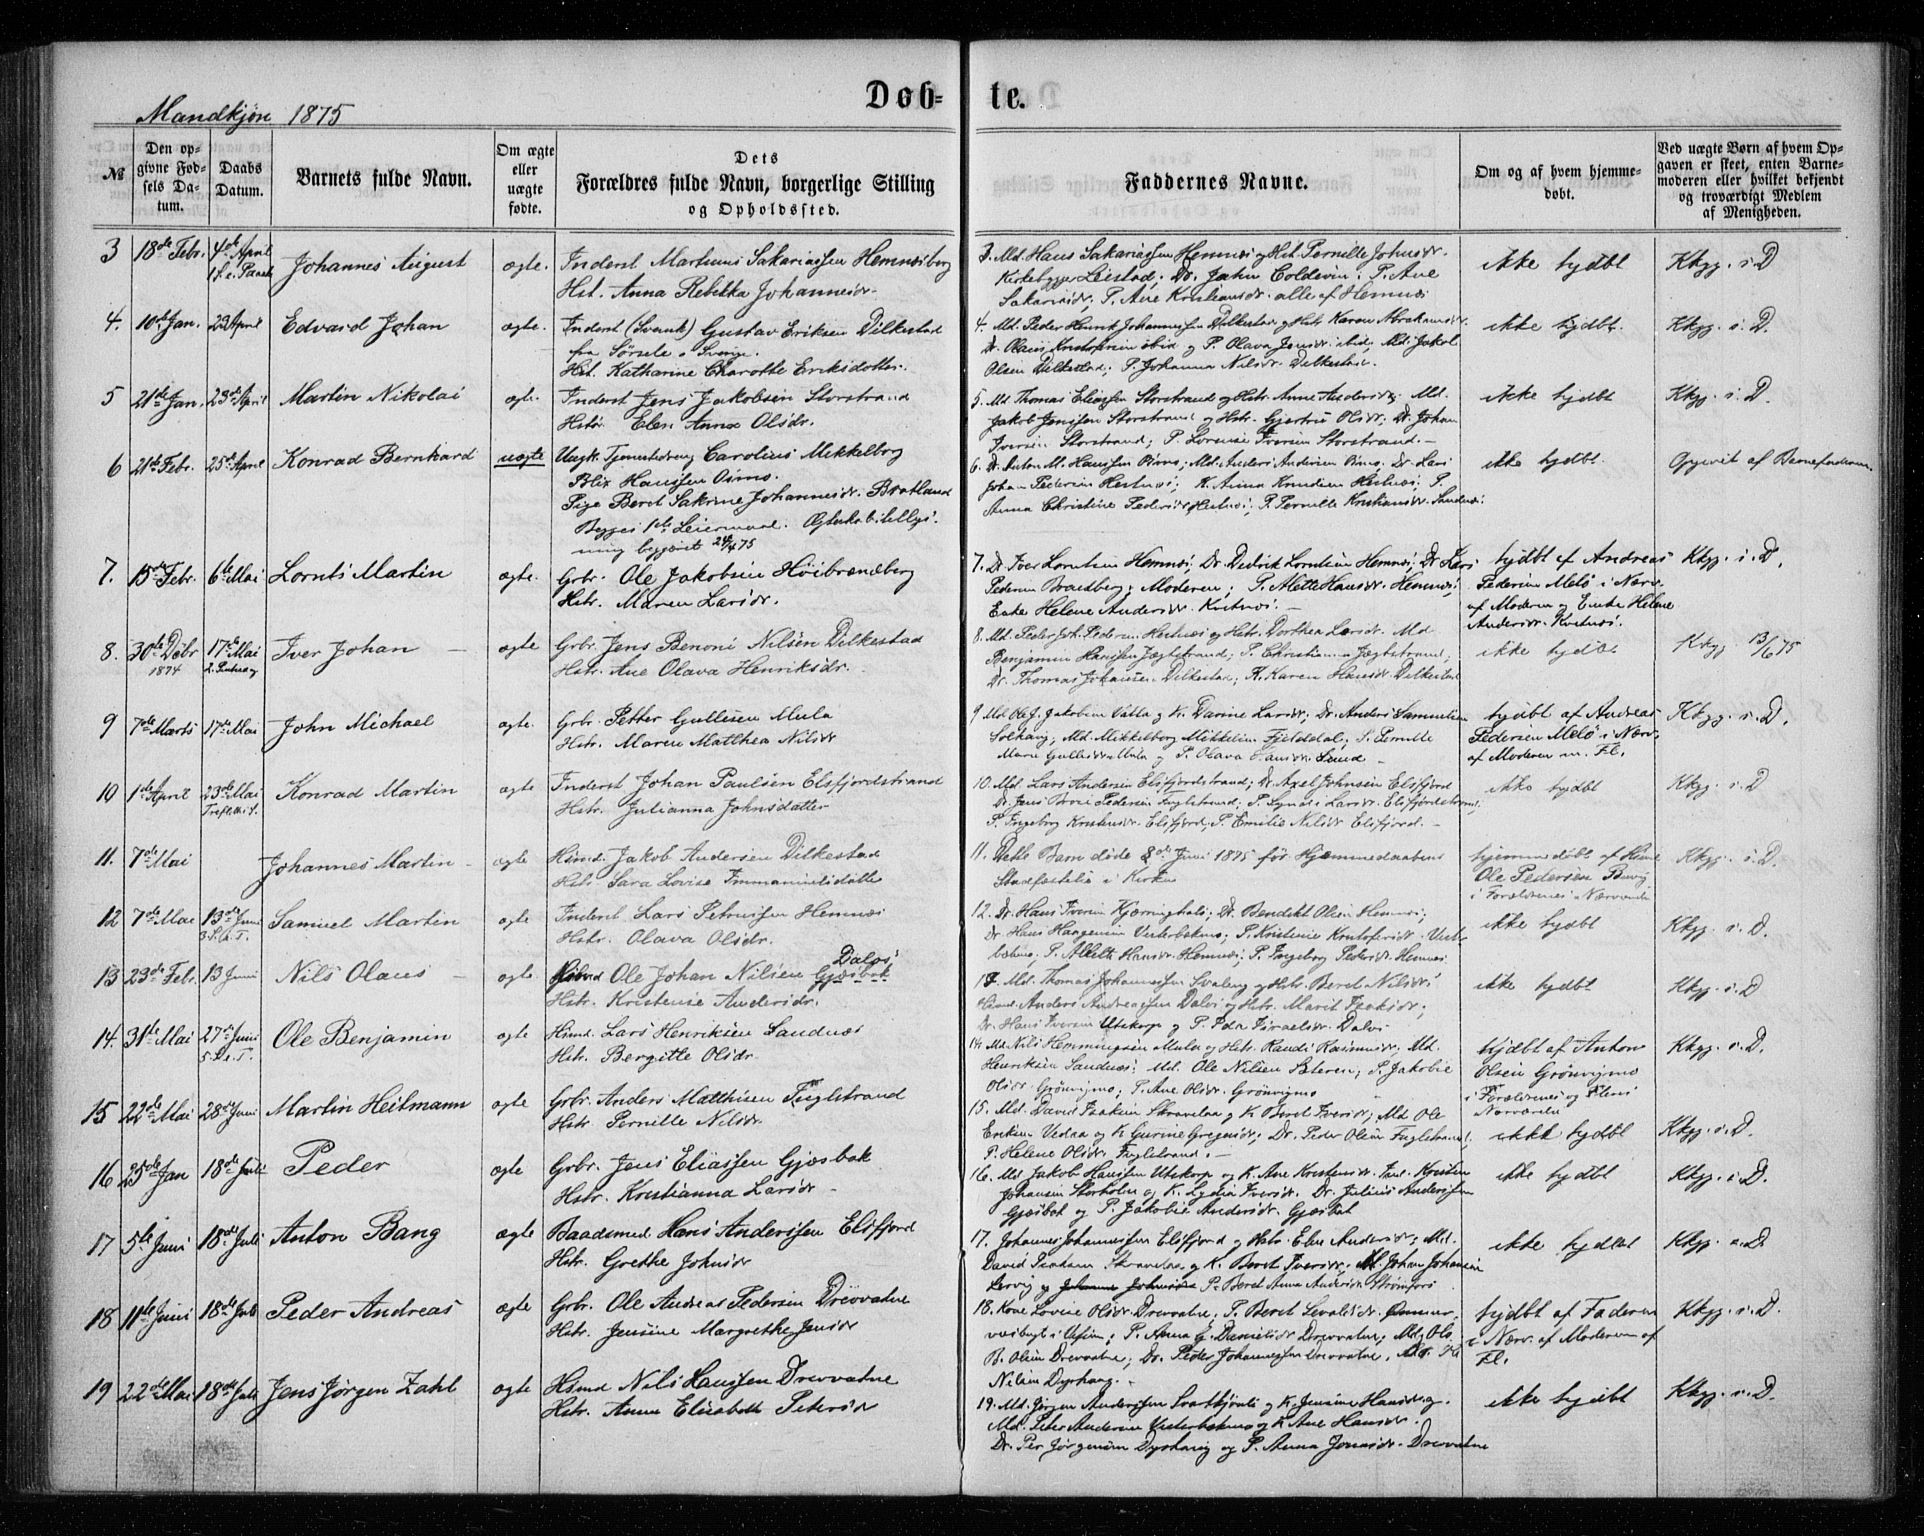 Døb-te.
Mandkjøn 1875
№
Den opgivne Fødsels Datum.
Daabs Datum.
Barnets fulde Navn.
Om ægte eller uægte fødte.
Dets Forældres fulde Navn, borgerlige Stilling og Opholdssted.
Faddernes Navne.
Om og af hvem hjemmedøbt.
Ved uægte Børn af hvem Opgaven er skeet, enten Barnemoderen eller hvilket bekjendt og troværdigt Medlem af Menigheden.
3 18de Febr. 4de April Johannes August ægte. Inderst Martinus Sakariassen Hemnesberg
Hst. Anna Rebekka Johannesdr.
3. Md. Hans Sakariassen Hemnes og Hst. Pernille Johnsdr.
Kirkebygger Leistad; Dr. Jakin Coldevin; P. Ane
Sakariasdr, P. Ane Kristiansdr. alle af Hemnes
ikke hjdbt Kkgj. i. D
4. 10de Jan. 23 April Edvard Johan ægte. Inderst (Svensk) Gustav Eriksen Dilkestad
fra Sørsele i Sverige.
Hst. Katharine Charotte Eriksdotter.
4. Md. Peder Henrik Johannessen Dilkestad og Hstr Karen Abrahamsdr.
Dr. Olaus Kristofersen ibid og P. Olava Jensdr ibid, Md. Jakob
Olsen Dilkestad; P. Johanna Nilsdr Dilkestad.
ikke hjdbt. Kkgj. i. D.
5 21de Jan. 23de April Martin Nikolai ægte. Inderst Jens Jakobsen Storstrand
Hstr. Elen Anna Olsdr.
5. Md Thomas Eliassen Storstrand og Hstr. Anne Andersdr; Md.
Jakob Jenssen Storstrand og Hstr. Gjertru Olsdr; Dr Johan
Iversen Storstrand; P. Lorense Iversen Storstrand.
ikke hjdbt Kkgj. i. D.
6 21de Febr. 25de April Konrad Bernhard uægte Ungk. Tjenestedreng Carolius Mikkelborg
Blix Hanssen Osmo.
Pige Beret Sakrine Johannesdr. Bratland
Begges 1ste Leiermaal. Ægteskabstillys-
ning begjæret 24/4 75
6. Dr. Anton M. Hanssen Osmo; Md. Anders Andersen Osmo; Dr Lars
Johan Pedersen Hestnes; K. Anna Knudsen Hestnes; P.
Anna Christine Pedersdr Hestnes; P. Pernille Kristiansdr. Sandnes.
ikke hjdbt. Opgivet af Barnefaderen
7. 15de Febr. 6te Mai Lornts Martin ægte. Grbr. Ole Jakobsen Høibrændberg
Hstr. Maren Larsdr.
7. Dr. Iver Lorntsen Hemnes; Dr. Didrik Lorntsen Hemnes; Dr Lars
Pedersen Brandberg; Moderen; P. Mette Hansdr. Hemnes;
Enke Helene Andersdr. Kvitnes.
hjdbt af Andreas
Pedersen Melø i Nærv.
af Moderen og Enke Helene
Andersdr. Kvitnes.
Kkgj. i. D.
8. 30de Dcbr 1874 17de Mai Iver Johan ægte Grbr. Jens Benoni Nilsen Dilkestad
Hstr. Ane Olava Henriksdr.
8. Md. Peder Joh. Pedersen Hestnes og Hstr. Dorthea Larsdr. Md
Benjamin Hansen Jægtstrand; P. Christianna Jægtstrand;
Dr. Thomas Johansen Dilkestad; K. Karen Hansdr. Dilkestad
ikke hjdbt Kkgj. 13/6 75
9 7de Marts 17de Mai John Michael ægte. Grbr. Petter Gullesen Mula
Hstr. Maren Matthea Nilsdr
9 Md Ole J. Jakobsen Valla og K. Darine Larsdr; Dr. Anders Samuelsen
Solhaug; Md. Mikkelborg Mikkelsen Fjelddal; P. Pernille
Marie Gullesdr. Mula og P. Olava Hansdr. Sund
hjdbt af Andreas
Pedersen Melø i Nærv.
af Moderen m. Fl.
Kkgj. i. D.
10 1ste April 23de Mai Konrad Martin ægte Inderst Johan Paulsen Elsfjordstrand
Hstr. Julianna Johnsdatter
10. Md. Lars Andersen Elsfjordstrand; Dr. Axel Johnsen Elsfjord
Dr. Jens Brose Pedersen Fuglstrand; P. Larsdr. Elsfjordstrand;
P. Ingeborg Kristensdr. Elsfjord; P. Emilie Nilsdr Elsfjord.
ikke hjdbt Kkgj. i. D
11. 7de Mai Johannes Martin ægte Hsmd. Jakob Andersen Dilkestad
Hstr Sara Lovise Immanuelsdatter
11. Dette Barn døde 8de Juni 1875 før Hjemmedaabens
Stadfæstelse i Kirken
hjemmedøbt af Hsmd
Ole Pedersen
i Forældrenes Nærværelse
Kkgj. i. D.
12 7de Mai 13de Juni 3. S. e. T. Samuel Martin ægte Inderst Lars Petersen Hemnes
Hstr. Olava Olsdr.
12. Dr. Hans Iversen Kjerringhals; Dr. Benedikt Olsen Hemnes;
Dr Hans Haagensen Vesterbekmo; P. Kristense Kristofersdr. Vester-
bekmo, P. Alette Hansdr. Hemnes; P. Ingeborg Pedersdr. Hemnes
ikke hjdbt Kkgj. i. D.
13 23de Febr. 13 Juni Nils Olaus ægte Hsmd Ole Johan Nilsen Gjæsbak Dalos
Hstr. Kristense Andersdr.
13. Md. Thomas Johannessen Svaleng og Hstr. Beret Nilsdr;
Hsmd. Anders Andreassen Dalos og Hstr. Marit Isaksdr;
Dr. Hans Iversen Utskarpe og P. Peda Israelsdr. Dalos
ikke hjdbt Kkgj. i. D
14. 31te Mai 27de Juni 5. S. e. T. Ole Benjamin ægte Hsmd. Lars Henriksen Sandnes
Hstr. Bergitte Olsdr.
14. Md. Nils Hemmingsen Mula og Hstr. Randi Rasmusdr; Md.
Henriksen Sandnes; Md. Ole Nilsen Sæteren; P. Jakobie
Olsdr Grønvigmo; P. Ane Olsdr. Grønvigmo
hjdbt af Anton
Olsen Grønvigmo
i Forældrenes og Fleres
Nærværelse
Kkgj. i. D.
15 22de Mai 28de Juni Martin Heitmann ægte Grbr. Anders Matthisen Fuglstrand
Hstr Pernille Nilsdr.
15. Md. David Isaksen Skravlaa og K. Beret Iversdr; Md. Ole
Eriksen Vedaa og K. Gurine Gregusdr; Dr. Peder Olsen Fuglstrand,
P. Helene Olsdr. Fuglstrand.
ikke hjdbt Kkgj. i. D.
16 25de Jan 18de Juli Peder ægte Grbr. Jens Eliassen Gjæsbak
Hstr. Kristianna Larsdr
16. Md Jakob Hansen Utskarpe og K. Ane Kristensdr. Kristen
Johansen Storholm og K. Lydia Iversdr. Dr. Julius Anderssen
Gjæsbak og P. Jakobie Andersdr. Gjæsbak
ikke hjdbt Kkgj. i. D.
17 5te Juni 18de Juli Anton Bang ægte Baadsmd Hans Anderssen Elsfjord
Hstr. Grethe Johnsdr
17. Johannes Johannessen Elsfjord og Hstr. Elen Andersdr; Md.
David Isaksen Skravlaa og K. Beret Iversdr; Md Johan Johansen
Lervig og P. Beret Anna Andersdr. Strømfors
ikke hjdbt Kkgj. i. D.
18 11te Juni 18de Juli Peder Andreas ægte Grbr. Ole Andreas Pedersen Drevvatne
Hstr. Jensine Margrethe Jensdr
18. Kone Lovise Olsdr. Drevvatne, P. Beret Sevaldsdr.
P. Anna E. Danielsdr Drevvatne; Md. Ole
B. Olsen Drevvatne; Dr. Peder Johannessen Drevvatne,
Nilsen Dyrhaug.
hjdbt af Faderen
i Nærv. af Moderen m
Fl.
Kkgj. i. D.
19 22de Mai 18de Juli Jens Jørgen Zahl ægte Hsmd Nils Hanssen Drevvatne
Hstr. Anne Elisabeth Petersdr
19. Md. Jørgen Anderssen og K. Jensine Hansdr.
Md. Peter Andersen Vesterbekmo og K. Ane Hansdr.
Dr. Per Jørgensen Dyrhaug og P. Anna Jensdr. Drevvatne
ikke hjdbt Kkgj. i. D.